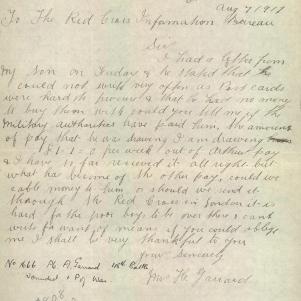 Aug 7 1917
To The Red Cross Information Bureau
Sir
I had a letter from
my son on Friday & he stated that he
could not write very often as Post cards
were hard to procure & that he had no money
to buy them with could you tell me if the
Military authorities have paid him, the amount
of pay that he was drawing I am drawing
£1-1-0 per week out of Father pay
& I have so far received it all right but
what has become of the other pay, could we
cable money to him or should we send it
through the Red Cross in London it is
hard for the poor boys to be over there & cant
write for want of means if you could oblige
me I shall be very thankful to you
your Sincerely
Mrs H Garrard
No 1666 Pte A, Garrard 14th Battn
Wounded & P of War